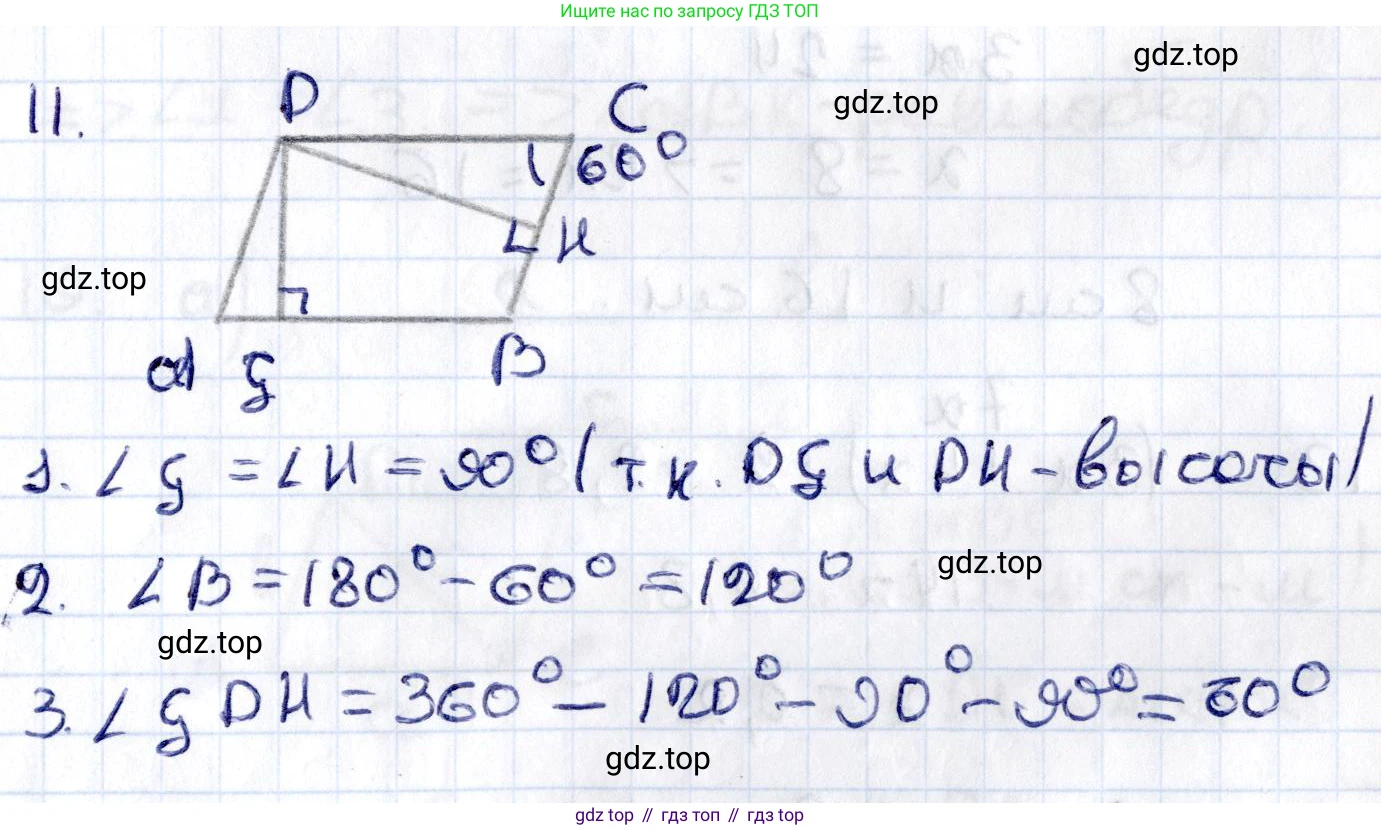 Ищите нас по запросу ГДЗ ТОП
gdz.top
gdz.top
11.
D
C
60°
H
gdz.top
A
G
B
1. ∠G = ∠H = 90° (т.к. DG и DH - высоты)
gdz.top
2. ∠B = 180° - 60° = 120°
gdz.top
3. ∠GDH = 360° - 120° - 90° - 90° = 60°
gdz.top
gdz top // гдз топ // гдз top